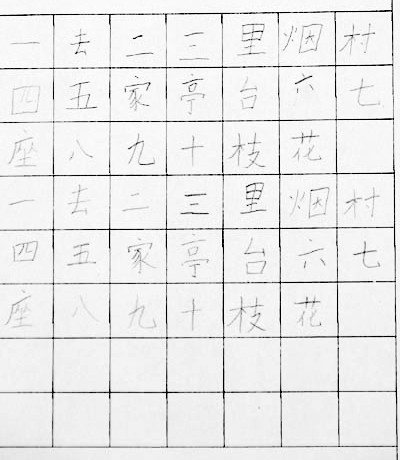 一去二三里烟村
四五家亭台六七
座八九十枝花
一去二三里烟村
四五家亭台六七
座八九十枝花